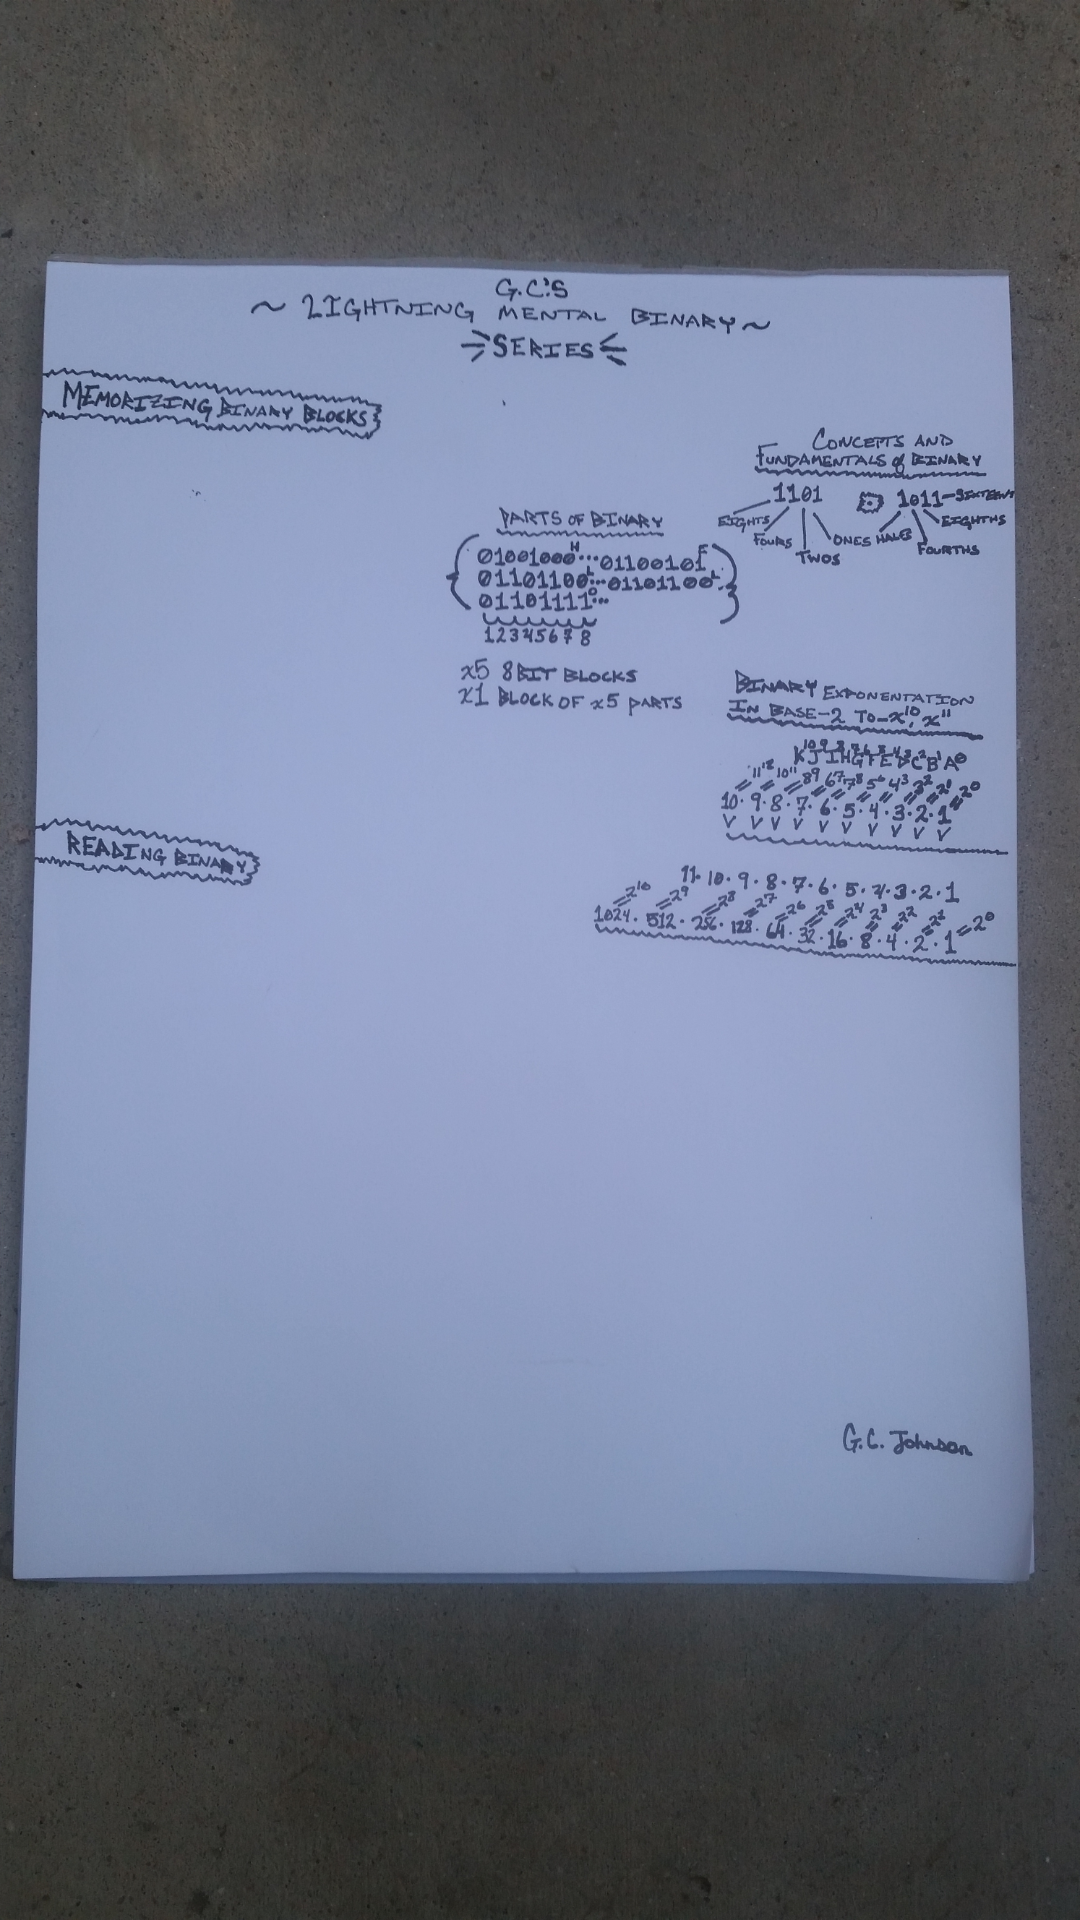 G.C.'S
~ LIGHTNING MENTAL BINARY ~
SERIES
MEMORIZING BINARY BLOCKS
CONCEPTS AND
FUNDAMENTALS of BINARY
1101 1011 - SIXTEENTHS
EIGHTS FOURS TWOS ONES HALFS FOURTHS EIGHTHS
PARTS OF BINARY
01001000 H ... 01100101 E
01101100 L ... 01101100 L
01101111 O ...
12345678
x5 8BIT BLOCKS
x1 BLOCK OF x5 PARTS
BINARY EXPONENTATION
IN BASE-2 TO - x¹⁰, x¹¹
10 · 9 · 8 · 7 · 6 · 5 · 4 · 3 · 2 · 1
READING BINARY
11 · 10 · 9 · 8 · 7 · 6 · 5 · 4 · 3 · 2 · 1
2¹⁰ 2⁹ 2⁸ 2⁷ 2⁶ 2⁵ 2⁴ 2³ 2² 2¹ 2⁰
1024 · 512 · 256 · 128 · 64 · 32 · 16 · 8 · 4 · 2 · 1
G.C. Johnson